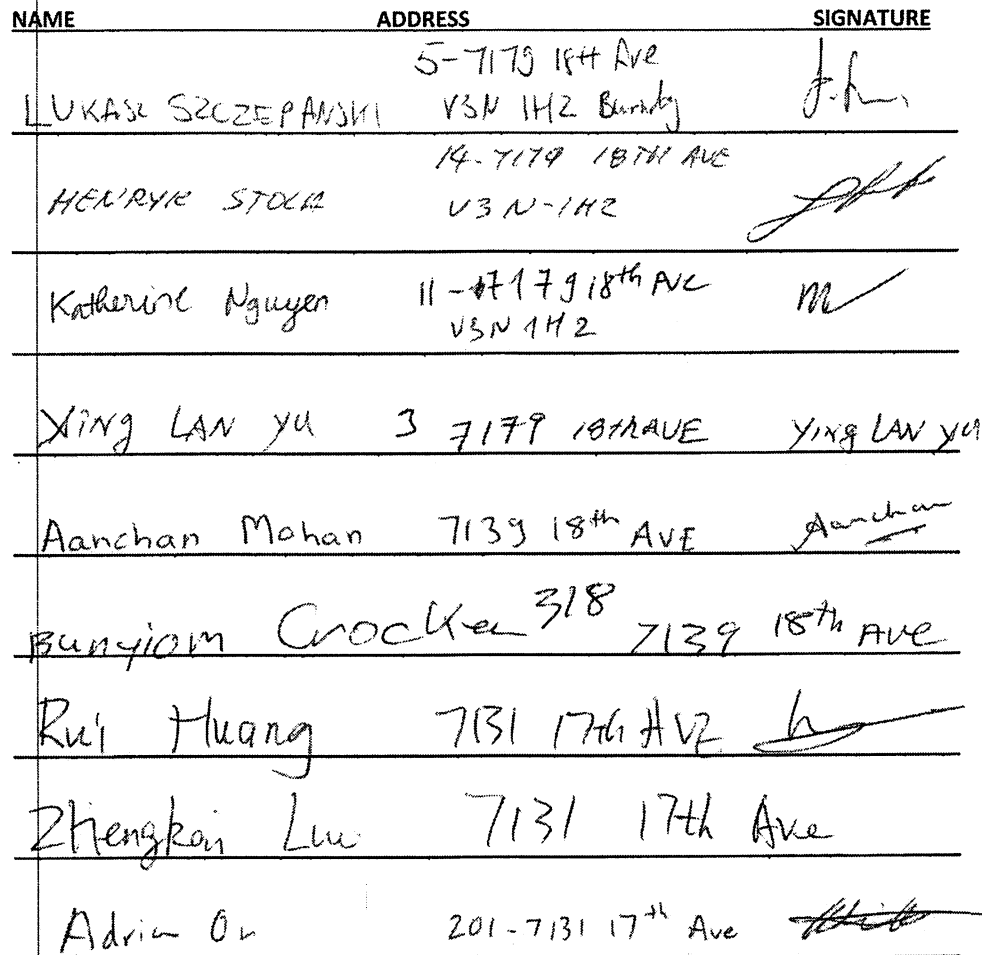 NAME ADDRESS SIGNATURE
5-7179 18th Ave
LUKASZ SZCZEPANSKI V3N 1H2 Burnaby
14-7179 18TH AVE
HENRYK V3N-1H2
Katherine Nguyen 11-7179 18th Ave
V3N 1H2
XING LAN YU 3 7179 18th AVE YING LAN YU
Aanchan Mohan 7139 18th AVE Aanchan
BUNYIOM Crocker 318 7139 18th AVE
Rui Huang 7131 17th AVE
Zhengkai 7131 17th Ave
Adrian 201-7131 17th Ave